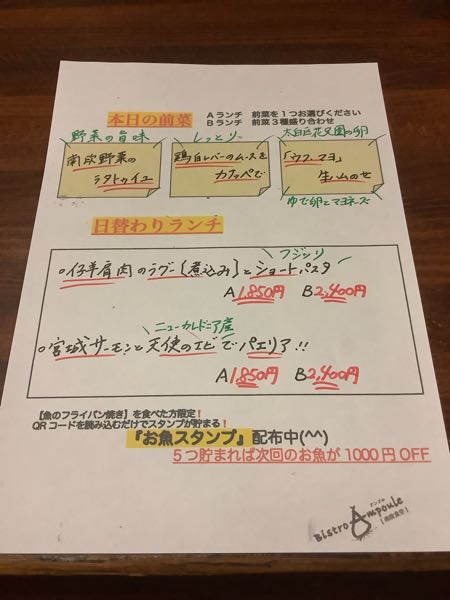 本日の前菜
Aランチ 前菜を1つお選びください
Bランチ 前菜3種盛り合わせ
野菜の旨味
南欧野菜の
ラタトゥイユ
しっとり
鶏白レバーのムースを
カナッペで
太白区花兄園の卵
「ウフ・マヨ」
生ハムのせ
ゆで卵とマヨネーズ
日替わりランチ
フジッリ
○仔羊肩肉のラグー[煮込み]とショートパスタ
A 1,850円 B 2,400円
ニューカレドニア産
○宮城サーモンと天使のエビでパエリア!!
A 1,850円 B 2,400円
【魚のフライパン焼き】を食べた方限定!
QRコードを読み込むだけでスタンプが貯まる!
『お魚スタンプ』配布中(^^)
5つ貯まれば次回のお魚が1000円OFF
アンプル
Bistro Ampoule